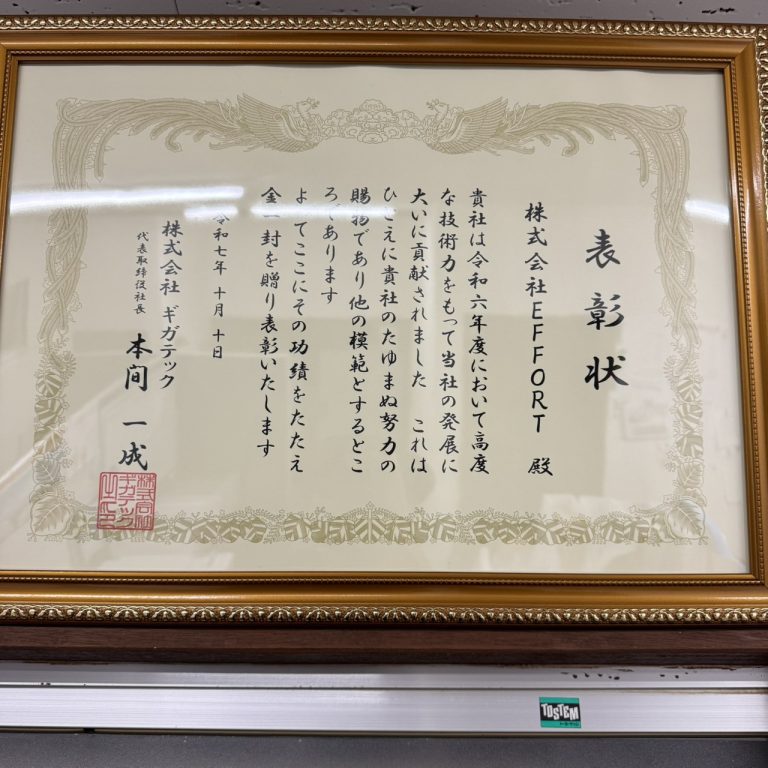 表彰状
株式会社EFFORT 殿
貴社は令和六年度において高度
な技術力をもって当社の発展に
大いに貢献されました これは
ひとえに貴社のたゆまぬ努力の
賜物であり他の模範とするとこ
ろであります
よってここにその功績をたたえ
金一封を贈り表彰いたします
令和七年 十月 十日
株式会社 ギガテック
代表取締役社長 本間 一成
株式会社
ギガテック
之印
TOSTEM